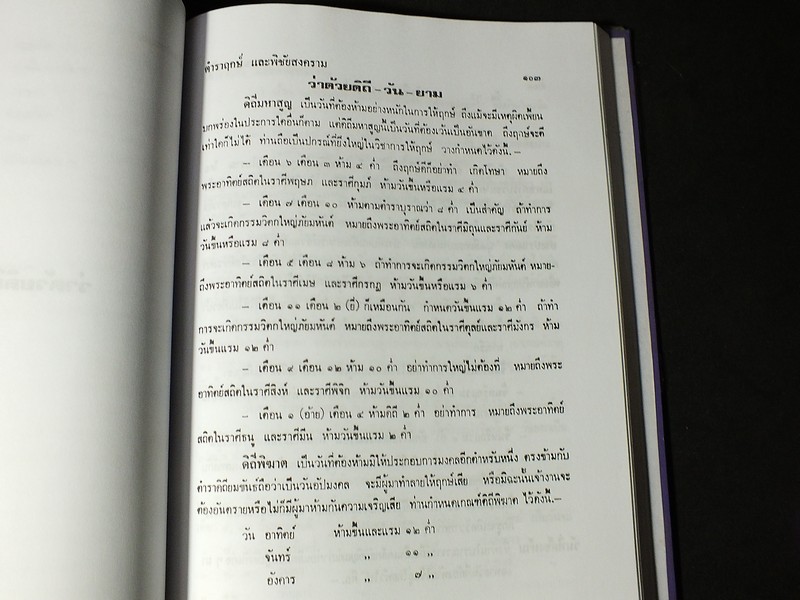 ตำราฤกษ์ และพิชัยสงคราม
๑๐๓
ว่าด้วยดิถี – วัน – ยาม
ดิถีมหาสูญ เป็นวันที่ต้องห้ามอย่างหนักในการให้ฤกษ์ ถึงแม้จะมีเหตุผิดเพี้ยน
บกพร่องในประการใดอื่นก็ตาม แต่ดิถีมหาสูญนี้เป็นวันที่ต้องเว้นเป็นอันขาด ถึงฤกษ์จะดี
เท่าใดก็ไม่ได้ ท่านถือเป็นปกรณ์ที่ยิ่งใหญ่ในวิชาการให้ฤกษ์ วางกำหนดไว้ดังนี้.—
— เดือน ๖ เดือน ๓ ห้าม ๔ ค่ำ ถึงฤกษ์ดีก็อย่าทำ เกิดโทษา หมายถึง
พระอาทิตย์สถิตในราศีพฤษภ และราศีกุมภ์ ห้ามวันขึ้นหรือแรม ๔ ค่ำ
— เดือน ๗ เดือน ๑๐ ห้ามตามตำราบุราณว่า ๘ ค่ำ เป็นสำคัญ ถ้าทำการ
แล้วจะเกิดกรรมวิตกใหญ่ภัยมหันต์ หมายถึงพระอาทิตย์สถิตในราศีมิถุนและราศีกันย์ ห้าม
วันขึ้นหรือแรม ๘ ค่ำ
— เดือน ๕ เดือน ๘ ห้าม ๖ ถ้าทำการจะเกิดกรรมวิตกใหญ่ภัยมหันต์ หมาย-
ถึงพระอาทิตย์สถิตในราศีเมษ และราศีกรกฎ ห้ามวันขึ้นหรือแรม ๖ ค่ำ
— เดือน ๑๑ เดือน ๒ (ยี่) ก็เหมือนกัน กำหนดวันขึ้นแรม ๑๒ ค่ำ ถ้าทำ
การจะเกิดกรรมวิตกใหญ่ภัยมหันต์ หมายถึงพระอาทิตย์สถิตในราศีตุลย์และราศีมังกร ห้าม
วันขึ้นแรม ๑๒ ค่ำ
— เดือน ๙ เดือน ๑๒ ห้าม ๑๐ ค่ำ อย่าทำการใหญ่ไม่ต้องที่ หมายถึงพระ
อาทิตย์สถิตในราศีสิงห์ และราศีพิจิก ห้ามวันขึ้นแรม ๑๐ ค่ำ
— เดือน ๑ (อ้าย) เดือน ๔ ห้ามดิถี ๒ ค่ำ อย่าทำการ หมายถึงพระอาทิตย์
สถิตในราศีธนู และราศีมีน ห้ามวันขึ้นแรม ๒ ค่ำ
ดิถีพิฆาต เป็นวันที่ต้องห้ามมิให้ประกอบการมงคลอีกตำหรับหนึ่ง ตรงข้ามกับ
ตำราดิถียมขันธ์ถือว่าเป็นวันอัปมงคล จะมีผู้มาทำลายให้ฤกษ์เสีย หรือมิฉะนั้นเจ้างานจะ
ต้องอันตรายหรือไม่ก็มีผู้มาห้ามกันความเจริญเสีย ท่านกำหนดเกณฑ์ดิถีพิฆาต ไว้ดังนี้.—
วัน อาทิตย์ ห้ามขึ้นและแรม ๑๒ ค่ำ
จันทร์ ,, ๑๑ ,,
อังคาร ,, ๗ ,,